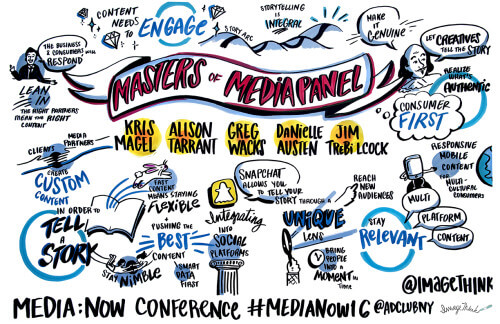 CONTENT
NEEDS TO
ENGAGE
STORY ARC
STORYTELLING
IS
INTEGRAL
MAKE
IT
GENUINE
LET CREATIVES
TELL THE
STORY
THE BUSINESS
& CONSUMERS WILL
RESPOND
LEAN
IN
THE RIGHT PARTNERS
MEAN THE RIGHT
CONTENT
MASTERS OF MEDIA PANEL
REALIZE
WHAT'S
AUTHENTIC
CONSUMER
FIRST
KRIS
MAGEL
ALISON
TARRANT
GREG
WACKS
DANIELLE
AUSTEN
JIM
TREBILCOCK
CLIENTS
MEDIA
PARTNERS
CREATE
CUSTOM
CONTENT
IN ORDER TO
TELL
A
STORY
FAST
CONTENT
MEANS STAYING
FLEXIBLE
PUSHING THE
BEST
CONTENT
STAY NIMBLE
SMART
DATA
FIRST
SNAPCHAT
ALLOWS YOU
TO TELL YOUR
STORY THROUGH A
UNIQUE
LENS
INTEGRATING
INTO
SOCIAL
PLATFORMS
REACH
NEW
AUDIENCES
BRING
PEOPLE
INTO A
MOMENT IN
TIME
STAY
RELEVANT
RESPONSIVE
MOBILE
CONTENT
FOR
MULTI-
CULTURAL
CONSUMERS
MULTI
PLATFORM
CONTENT
@IMAGETHINK
MEDIA:NOW CONFERENCE #MEDIANOW16 @ADCLUBNY
ImageThink